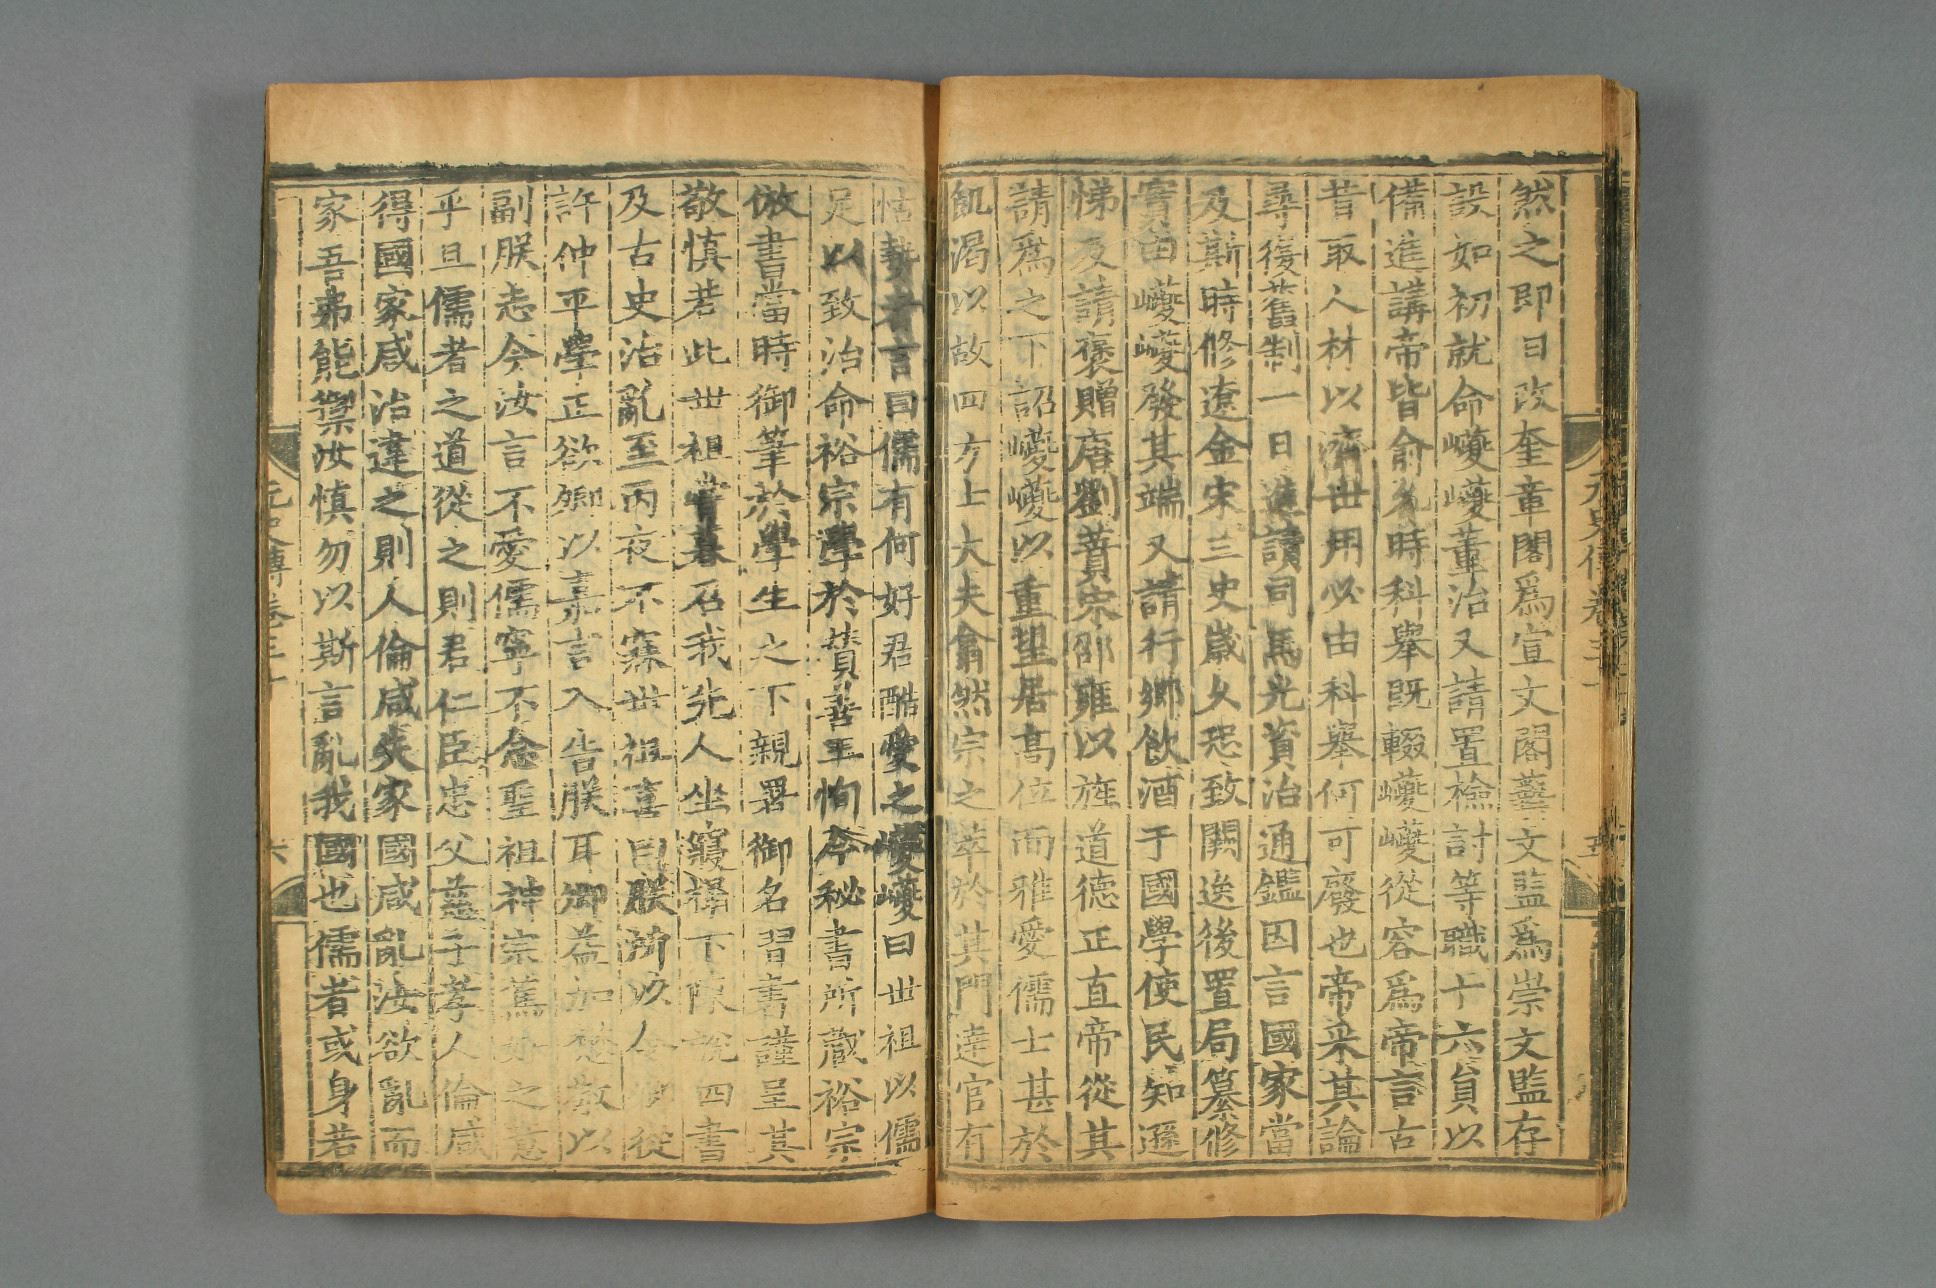 然之即日改奎章閣爲宣文閣藝文監爲崇文監存
設如初就命巙巙董治又請置檢討等職十六員以
備進講帝皆俞允時科舉既輟巙巙從容爲帝言古
昔取人材以濟世用必由科舉何可廢也帝采其論
尋復舊制一日進讀司馬光資治通鑑因言國家當
及斯時修遼金宋三史歲久恐致闕逸後置局纂修
實由巙巙發其端又請行鄉飲酒于國學使民知遜
悌及請褒贈唐劉蕡宋邵雍以旌道德正直帝從其
請爲之下詔巙巙以重望居高位而雅愛儒士甚於
飢渴以故四方士大夫翕然宗之萃於其門達官有
怙勢者言曰儒有何好君酷愛之巙巙曰世祖以儒
足以致治命裕宗學於贊善王恂今秘書所藏裕宗
倣書當時御筆於學生之下親署御名習書謹呈其
敬慎若此世祖嘗暮召我先人坐寢榻下陳說四書
及古史治亂至丙夜不寐世祖喜曰朕所以令卿從
許仲平學正欲卿以嘉言入告朕耳卿益加懋敬以
副朕志今汝言不愛儒寧不念聖祖神宗篤好之意
乎且儒者之道從之則君仁臣忠父慈子孝人倫咸
得國家咸治違之則人倫咸失家國咸亂汝欲亂而
家吾弗能禦汝慎勿以斯言亂我國也儒者或身若
元史傳卷三十
六